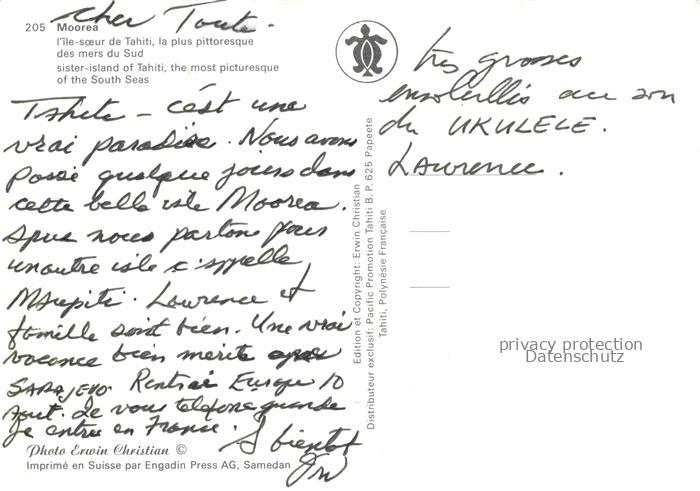 cher Toute -
205 Moorea
l'île-sœur de Tahiti, la plus pittoresque
des mers du Sud
sister-island of Tahiti, the most picturesque
of the South Seas
Tahite - c'est une
vrai paradise. Nous avons
passé quelque jours dans
cette belle isle Moorea.
nous partons pour
un autre isle s'appelle
MAupiti. Laurence et
famille sont bien. Une vrai
vacance bien merite apres
SARAJEVO. Rentrée Europe 10
Aout. Je vous telefone quande
Je entre en France. A bientot
Photo Erwin Christian ©
Imprimé en Suisse par Engadin Press AG, Samedan
Edition et Copyright: Erwin Christian
Distributeur exclusif: Pacific Promotion Tahiti B. P. 625 Papeete
Tahiti, Polynésie Française
tres grosses
au son
du UKULELE.
LAurence.
privacy protection
Datenschutz